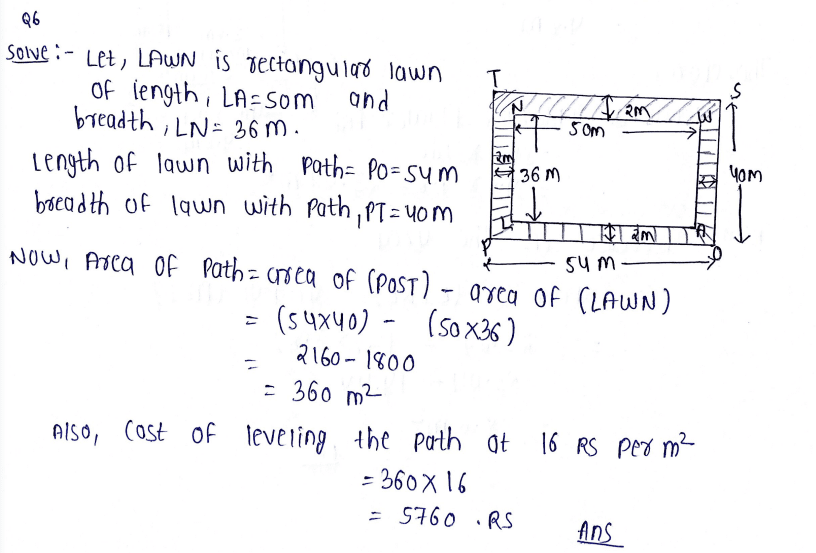 Q6
Solve :- Let, LAWN is rectangular lawn
of length, LA=50m and
breadth, LN= 36m.
Length of lawn with Path= PO=54M
breadth of lawn with Path, PT=40M
T
S
N
W
2m
50m
2m
36 M
2
40m
L
A
2m
P
O
54 M
Now, Area of Path= area of (POST) - area of (LAWN)
= (54x40) - (50x36)
= 2160-1800
= 360 m²
Also, Cost of leveling the path at 16 RS per m²
=360x16
= 5760 .RS
Ans